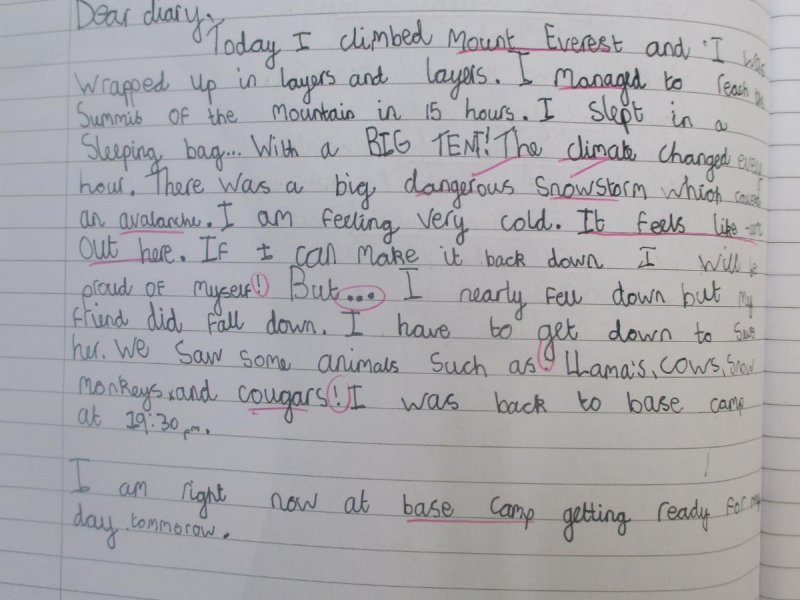 Dear diary,
Today I climbed Mount Everest and I was
wrapped up in layers and layers. I managed to reach the
Summit of the mountain in 15 hours. I slept in a
Sleeping bag... With a BIG TENT! The climate changed every
hour. There was a big dangerous Snowstorm which caused
an avalanche. I am feeling very cold. It feels like
out here. If I can make it back down I will be
proud of myself! But... I nearly fell down but my
friend did fall down. I have to get down to save
her. We saw some animals such as LLama's, cows, snow
monkeys, and cougars! I was back to base camp
at 19:30 pm.
I am right now at base camp getting ready for my
day tommorow.